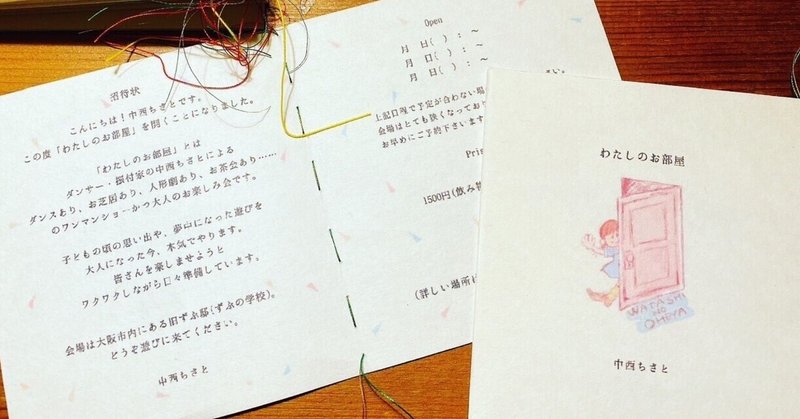 招待状
こんにちは！中西ちさとです。
この度「わたしのお部屋」を開くことになりました。
「わたしのお部屋」とは
ダンサー・振付家の中西ちさとによる
ダンスあり、お芝居あり、人形劇あり、お茶会あり……
のワンマンショーかつ大人のお楽しみ会です。
子どもの頃の思い出や、夢中になった遊びを
大人になった今、本気でやります。
皆さんを楽しませようと
ワクワクしながら日々準備しています。
会場は大阪市内にある旧ずぶ邸(ずぶの学校)。
どうぞ遊びに来てください。
中西ちさと
Open
月 日( ) : ～
月 日( ) : ～
月 日( ) : ～
上記日程で予定が合わない場
会場はとても狭くなってお
お早めにご予約下さいま
1500円(飲み物
(詳しい場所
わたしのお部屋
WATASHI
NO
OHEYA
中西ちさと